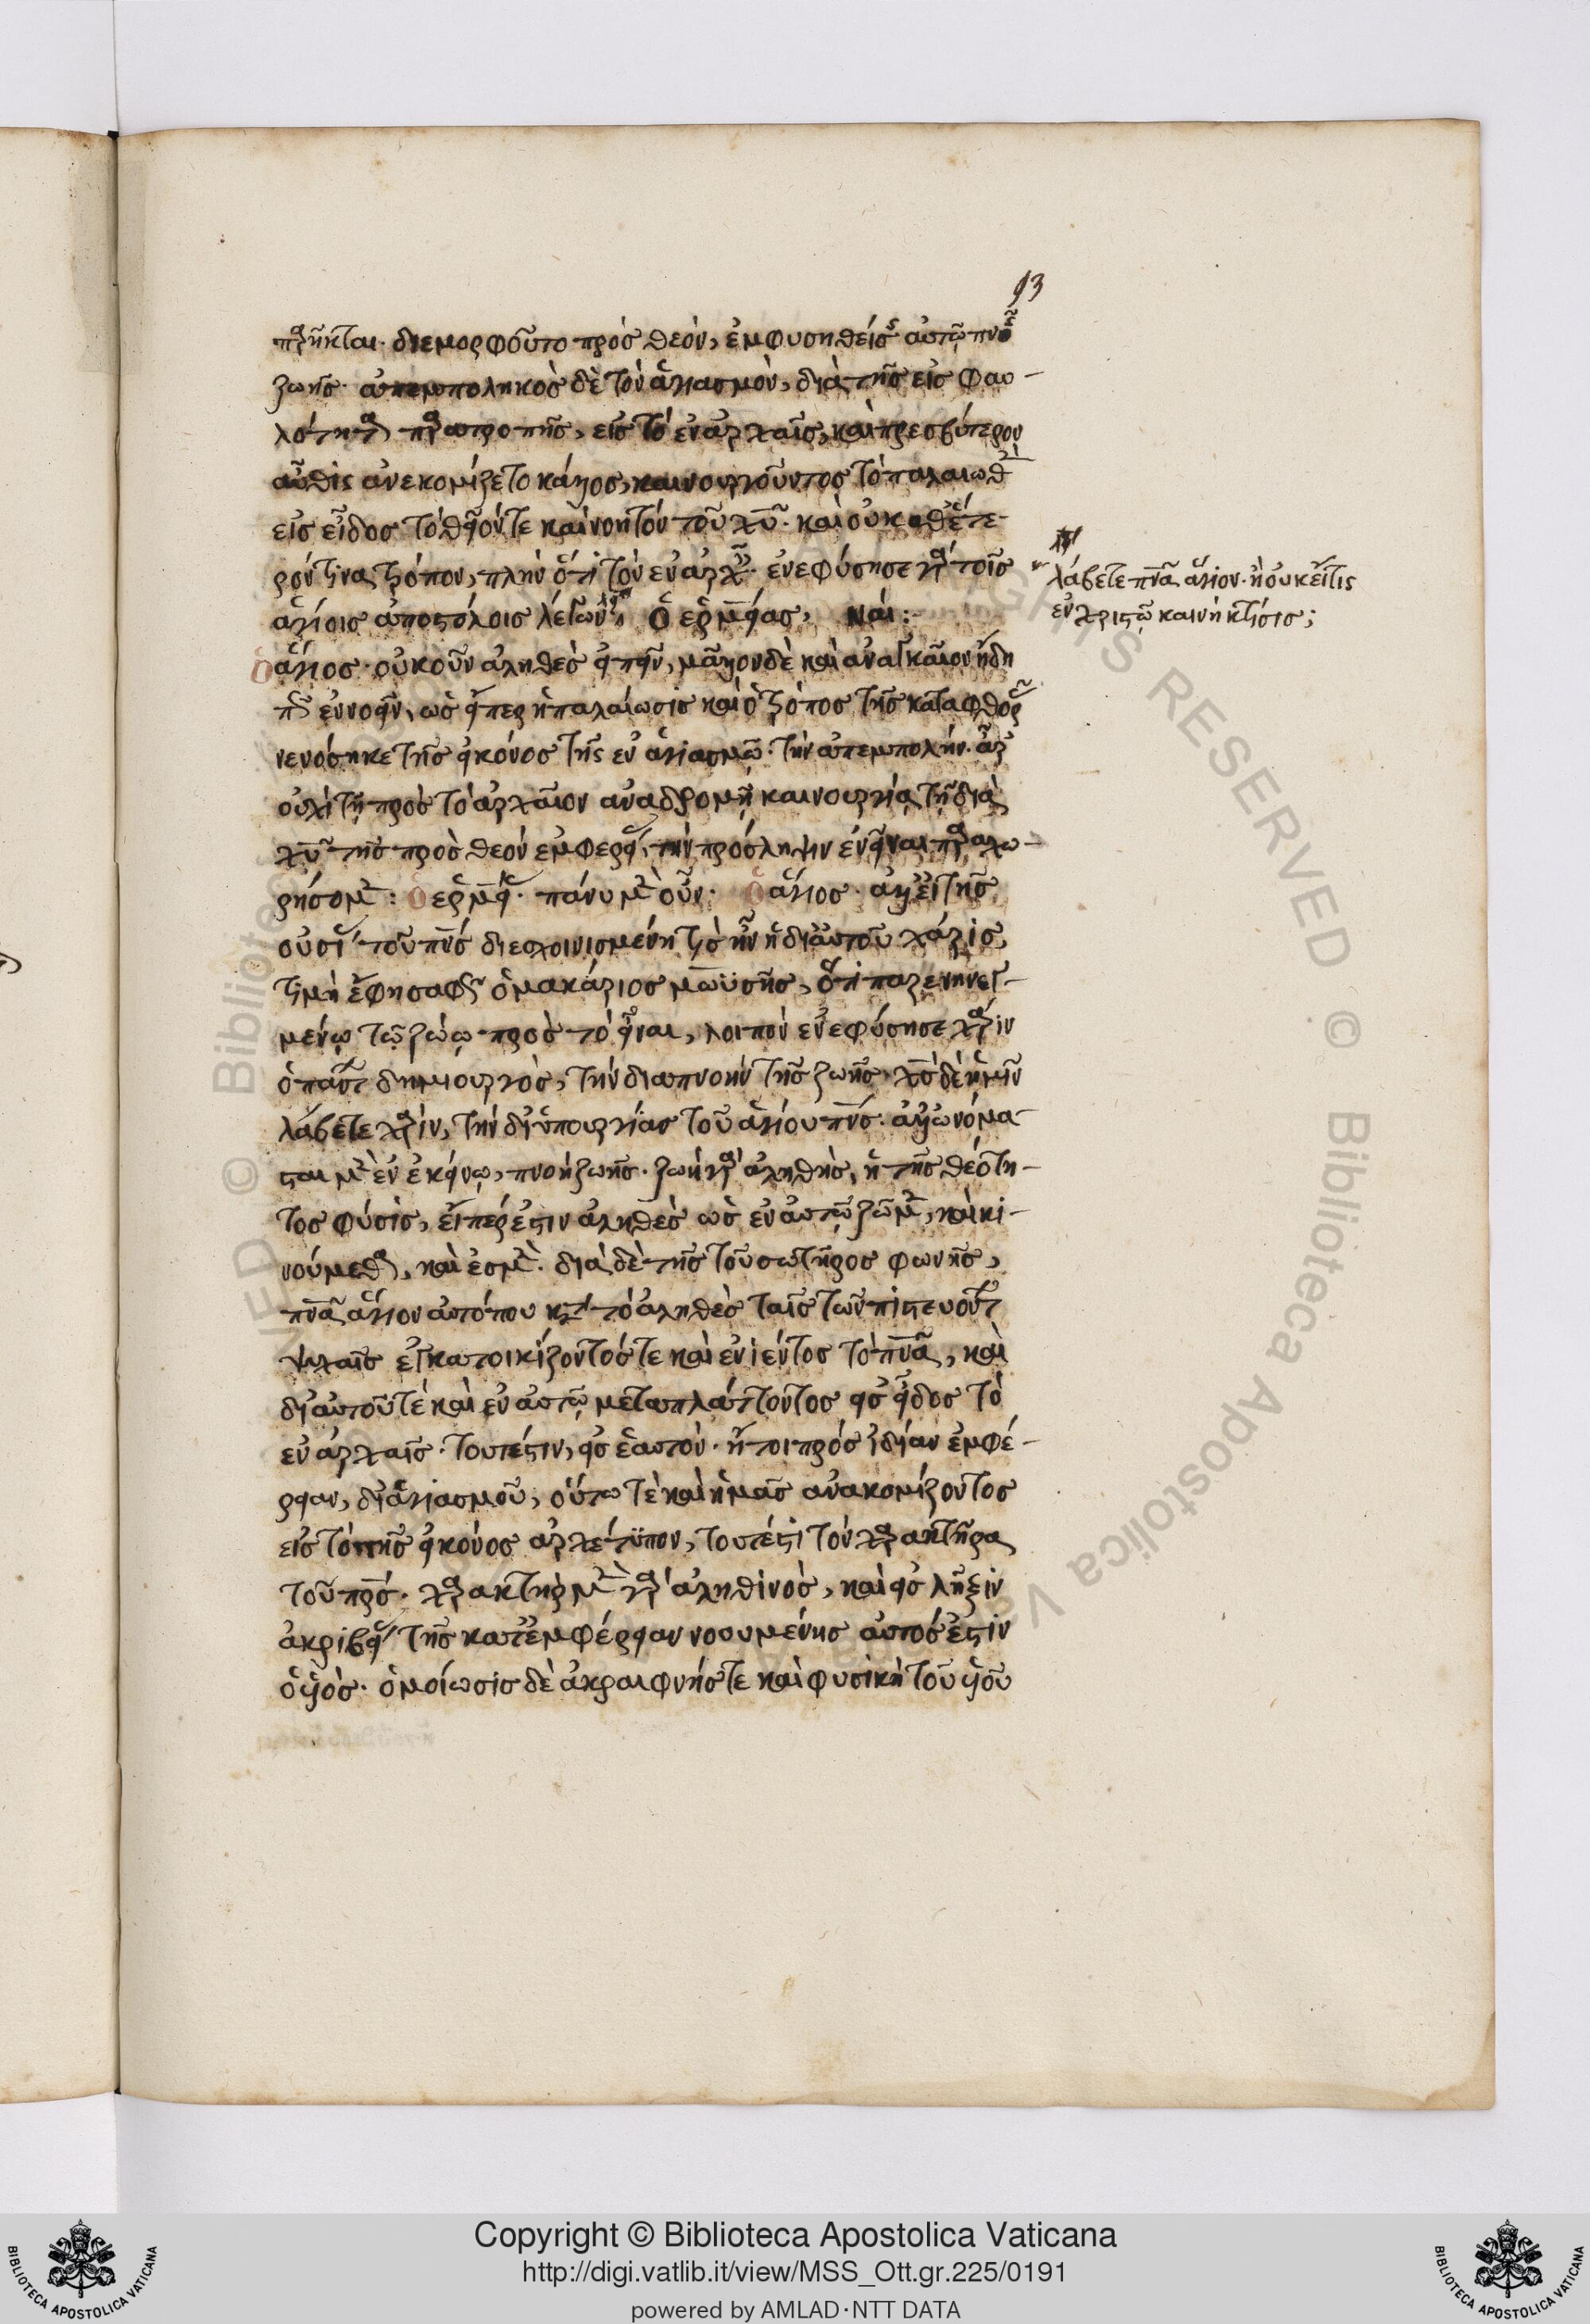 93
πρῆκται. διεμορφοῦτο πρὸς θεόν, ἐμφυσηθείσ αὐτῷ πνοῆσ
ζωῆς. ἀπεμποληκὸς δὲ τὸν ἁγιασμὸν, διὰ τῆς εἰς φαυ-
λότητα παρατροπῆς, εἰς τὸ ἐν ἀρχαῖς, καὶ πρεσβύτερον
αὖθις ἀνεκομίζετο κάλλος, καινουργοῦντος τὸ παλαιωθὲν
εἰς εἶδος τὸ θεῖόν τε καὶ νοητὸν τοῦ χυ. καὶ οὐ καθ' ἕτε-
ρόν τινα τρόπον, πλὴν ὅτι τὸν ἐν ἀρχῇ. ἐνεφύσησε γὰρ τοῖς
ἁγίοις ἀποστόλοις λέγων ὁ ἑρμείας, ναί:
ὁ ἅγιος. οὐκοῦν ἀληθὲς εἰπεῖν, μᾶλλον δὲ καὶ ἀναγκαῖον ἤδη
πως ἐννοεῖν, ὡς εἴπερ ἡ παλαίωσις καὶ ὁ τρόπος τῆς καταφθορᾶς
νενόσηκε τῆς εἰκόνος τῆς ἐν ἁγιασμῷ. τὴν ἀπεμπολήν. ἆρ
οὐχὶ τῇ πρὸς τὸ ἀρχαῖον ἀναδρομῇ καινουργίᾳ τῇ διὰ
χυ τῆς πρὸς θεὸν ἐμφερείας, τὴν πρόσληψιν ἐνεῖναι παραχω-
ρήσομεν: ὁ ἑρμείας. πάνυ μὲν οὖν. ὁ ἅγιος. ἀλλ' εἰ τῆς
οὐσίας τοῦ πνς διεσχοινισμένη τις ἦν ἡ δι' αὐτοῦ χάρις,
τί μὴ ἔφη σαφῶς ὁ μακάριος μωϋσῆς, ὅτι παρενηνεγ-
μένῳ τῷ ζώῳ πρὸς τὸ εἶναι, λοιπὸν ἐνεφύσησε χάριν
ὁ πάντων δημιουργὸς, τὴν διὰ πνοὴν τῆς ζωῆς. χς δὲ ἡμῖν
λάβετε χάριν, τὴν δι' ὑπουργίας τοῦ ἁγίου πνς. ἀλλ' ὠνόμα-
σται μὲν ἐν ἐκείνῳ, πνοὴ ζωῆς. ζωὴ γὰρ ἀληθὴς, ἡ τῆς θεότη-
τος φύσις, εἴπερ ἐστὶν ἀληθὲς ὡς ἐν αὐτῷ ζῶμεν, καὶ κι-
νούμεθα, καὶ ἐσμὲν. διὰ δὲ τῆς τοῦ σωτῆρος φωνῆς,
πνα ἅγιον αὐτό που κατὰ τὸ ἀληθὲς ταῖς τῶν πιστευόντων
ψυχαῖς ἐγκατοικίζοντός τε καὶ ἐνιέντος τὸ πνα, καὶ
δι' αὐτοῦ τὲ καὶ ἐν αὐτῷ μεταπλάττοντος εἰς εἶδος τὸ
ἐν ἀρχαῖς. τουτέστιν, εἰς ἑαυτὸν. ἤτοι πρὸς ἰδίαν ἐμφέ-
ρειαν, δι' ἁγιασμοῦ, οὕτω τὲ καὶ ἡμᾶς ἀνακομίζοντος
εἰς τὸ τῆς εἰκόνος ἀρχέτυπον, τουτέστι τὸν χαρακτῆρα
τοῦ πρς. χαρακτὴρ μὲν γὰρ ἀληθινὸς, καὶ εἰς λῆξιν
ἀκριβείας τῆς κατ' ἐμφέρειαν νοουμένης αὐτός ἐστιν
ὁ υἱός. ὁμοίωσις δὲ ἀκραιφνής τε καὶ φυσικὴ τοῦ υἱοῦ
λάβετε πνα ἅγιον. ἢ οὐκ εἴ τις
ἐν χριστῷ καινὴ κτίσις;
Copyright © Biblioteca Apostolica Vaticana
http://digi.vatlib.it/view/MSS_Ott.gr.225/0191
powered by AMLAD·NTT DATA
BIBLIOTECA APOSTOLICA VATICANA
BIBLIOTECA APOSTOLICA VATICANA